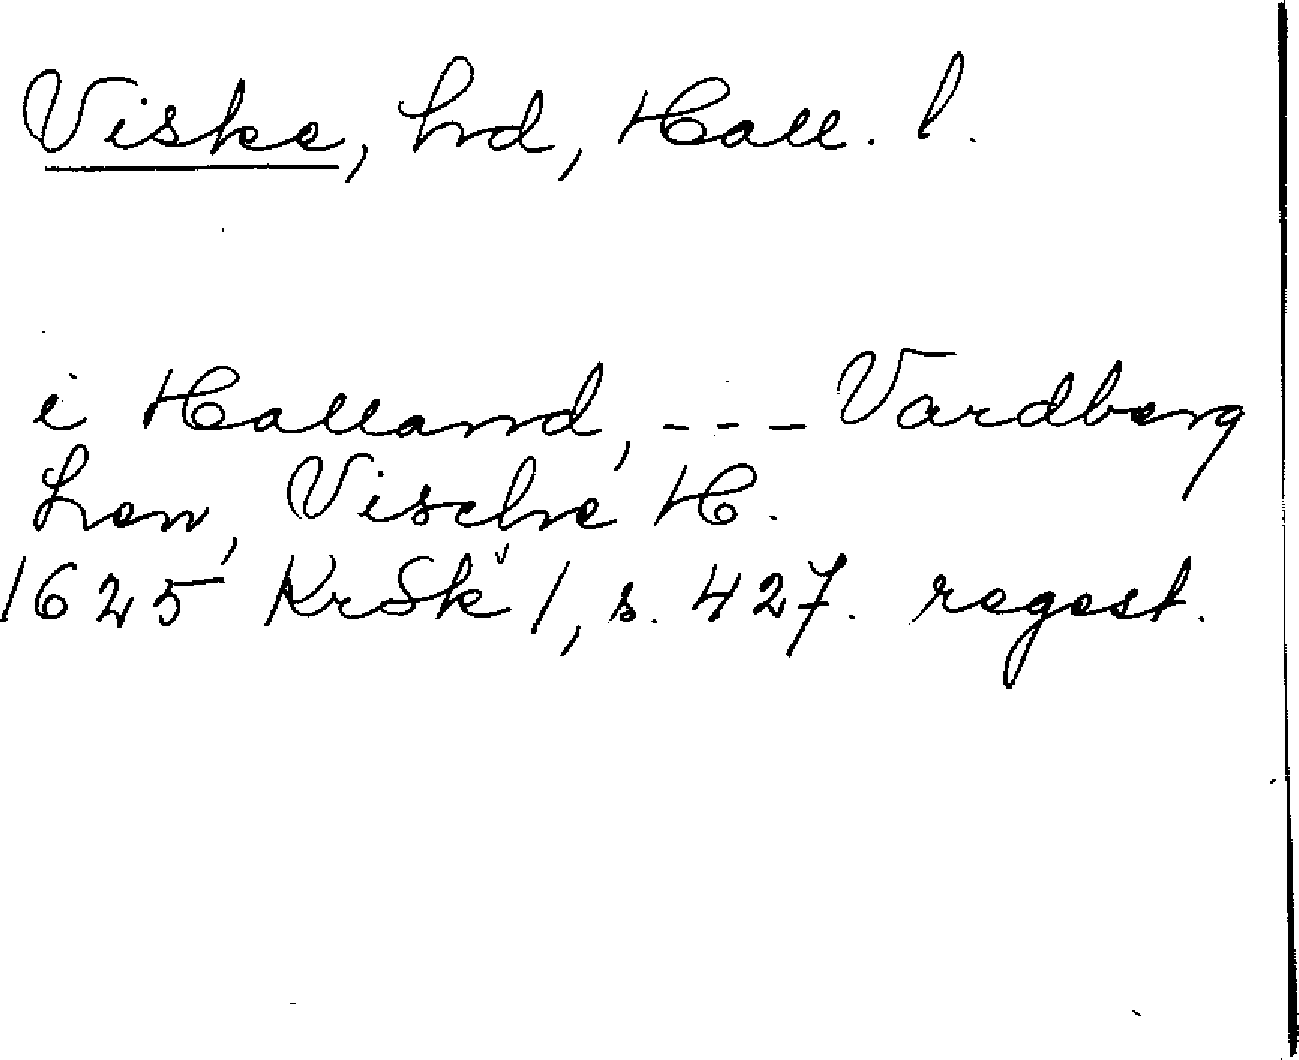 Viske, hd, Hall. l.
i Halland, --- Vardberg
Len, Vische H.
1625 KrSk 1, s. 427. regest.